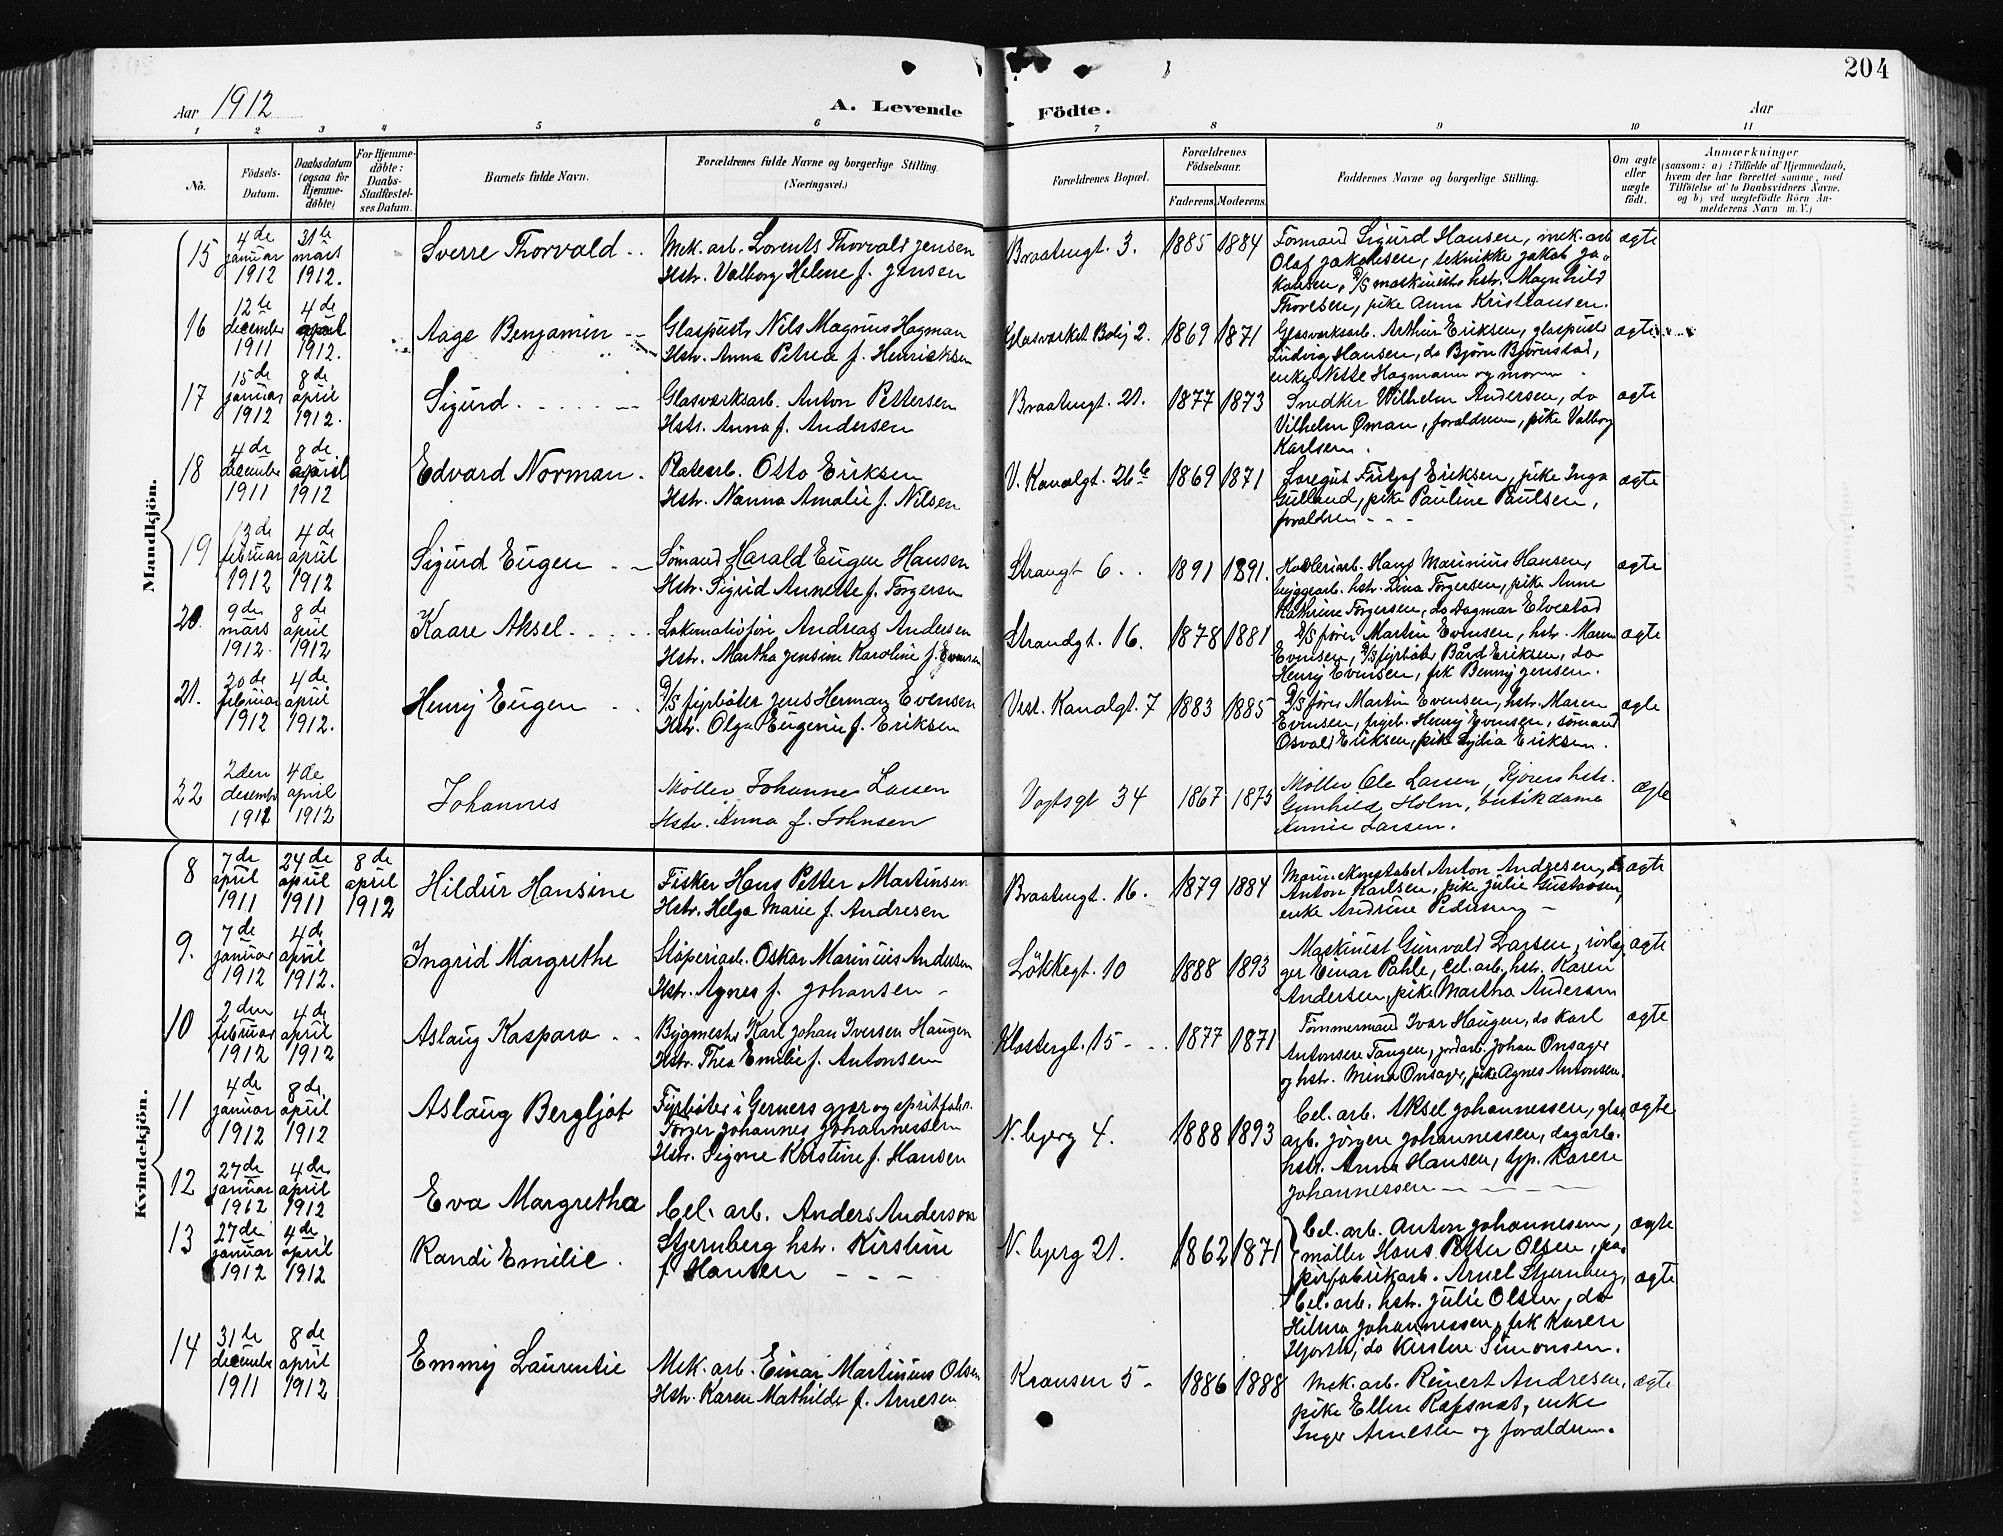 204
Aar 1912
A. Levende Födte.
Aar
1 2 3 4 5 6 7 8 9 10 11
No.
Födsels-Datum.
Daabsdatum (ogsaa for Hjemme-döbte)
For Hjemme-döbte: Daabs-Stadfæstel-ses Datum.
Barnets fulde Navn.
Forældrenes fulde Navne og borgerlige Stilling. (Næringsvei.)
Forældrenes Bopæl.
Forældrenes Födselsaar.
Faderens. Moderens.
Faddernes Navne og borgerlige Stilling.
Om ægte eller uægte födt.
Anmærkninger
(saasom: a) i Tilfælde af Hjemmedaab, hvem der har forrettet samme, med Tilföielse af to Daabsvidners Navne. og b) ved uægtefödte Börn An-melderens Navn m. V.)
Mandkjön.
15 4de januar 1912 31te mars 1912. Sverre Thorvald
Mek. arb. Lorents Thorvald Jensen
Hstr. Valborg Helene f. Jensen
Braatengt. 3. 1885 1884
Formand Sigurd Hansen, mek. arb
Olaf Jakobsen, tekniker Jakob Ja-
kobsen, D/S maskinists hstr. Magnhild
Thoresen, pike Anna Kristiansen.
ægte
16 12te december 1911 4de april 1912. Aage Benjamin
Glaspustr Nils Magnus Hagman
Hstr. Anna Petrea f. Henriksen
Glasværket Bolig 2. 1869 1871
Glasværksarb. Arthur Eriksen, glaspuster
Ludvig Hansen, do Bjørn Bjørnstad,
enke Nette Hagmann og moren
ægte
17 15de januar 1912 8de april 1912. Sigurd
Glasværksarb. Anton Pettersen
Hstr. Anna f. Andersen
Braatengt. 21. 1877 1873
Snedker Wilhelm Andersen, do
Vilhelm Øman, forældrene, pike Valborg
Karlsen.
ægte
18 4de december 1911 8de april 1912 Edvard Norman
Platearb. Otto Eriksen
Hstr. Nanna Amalie f. Nilsen
V. Kanalgt. 26b 1869 1871
Fritjof Eriksen, pike Inga
Gulland, pike Pauline Paulsen,
forældren
ægte
19 13de februar 1912 4de april 1912 Sigurd Eugen
Sømand Harald Eugen Hansen
Hstr. Sigrid Annette f. Torgersen
Strangt 6. 1891 1891.
Hans Marinius Hansen,
bryggearb. hstr. Lina Torgersen, pike Anne
Kathrine Torgersen, do Dagmar Elvestad
ægte
20. 9de mars 1912. 8de april 1912 Kaare Aksel
Lokomotivfør. Andreas Andersen
Hstr. Martha Jensine Karoline f. Evensen
Strandgt. 16. 1878 1881
D/S fører Martin Evensen, hstr. Maren
Evensen, D/S fyrbøter Bård Eriksen, do
Henry Evensen, frk Benny Jensen.
ægte
21. 20de februar 1912 4de april 1912. Henry Eugen
D/S fyrbøter Jens Herman Evensen
Hstr. Olga Eugenie f. Eriksen
Vest. Kanalgt. 7 1883 1885
D/S fører Martin Evensen, hstr. Maren
Evensen, fyrb. Henry Evensen, sømand
Osvald Eriksen, pike Lydia Eriksen.
ægte
22 2den desember 1911 4de april 1912 Johannes
Møller Johannes Larsen
Hstr. Anna f. Johnsen
Vogtsgt 34 1867 1875
Møller Ole Larsen, kjøres hstr.
Gunhild Holm, butikdame
Annie Larsen.
ægte
Kvindekjön.
8 7de april 1911 24de april 1911 8de april 1912 Hildur Hansine
Fisker Hans Petter Martinsen
Hstr. Helga Marie f. Andresen
Braatengt. 16. 1879 1884
Anton Andresen, do
Anton Karlsen, pike Julie Gustavsen,
enke Andrine Pedersen
ægte
9. 7de januar 1912 4de april 1912. Ingrid Margrethe
Støperiarb. Oskar Marinius Andersen
Hstr. Agnes f. Johansen
Løkkegt. 10 1888 1893
Maskinist Gunvald Larsen,
ger Einar Pahle, Cel. arb. hstr. Karen
Andersen, pike Martha Andersen
ægte
10 2den februar 1912 4de april 1912 Aslaug Kaspara
Bygmester Karl Johan Iversen Haugen
Hstr. Thea Emilie f. Antonsen
Klostergt. 15 1877 1871
Tømmermand Ivar Haugen, do Karl
Antonsen Tangen, jordarb. Johan Onsager
og hstr. Mina Onsager, pike Agnes Antonsen.
ægte
11 4de januar 1912 8de april 1912 Aslaug Bergljot
Fyrbøter i Gerners gjær og spritfabr.
Torger Johannes Johannessen
Hstr. Signe Kristine f. Hansen
N. bjerg 4. 1888 1893
Cel. arb. Aksel Johannessen, glas
arb. Jørgen Johannessen, dagarb.
hstr. Anna Hansen, tjp. Karen
Johannessen
ægte
12 27de januar 1912 4de april 1912 Eva Margretha
13 27de januar 1912 4de april 1912 Randi Emilie
Cel. arb. Anders Anderson
Stjernberg hstr. Kirstine
f. Hansen
N. bjerg 21. 1862 1871
Cel. arb. Anton Johannesen,
møller Hans Petter Olsen, pa-
pirfabrikarb. Arnel Stjernberg,
Cel. arb. hstr. Julie Olsen, do
Hilma Johannessen, frk Karen
Hjorth, do Kirstine Simonsen.
ægte
ægte
14 31te december 1911 8de april 1912 Emmy Laurentie
Mek. arb. Einar Martinius Olsen
Hstr. Karen Mathilde f. Arnesen
Kransen 5 1886 1888
Mek. arb. Reinert Andresen,
pike Ellen Rafsnæs, enke
Inger Arnesen og forældrene.
ægte